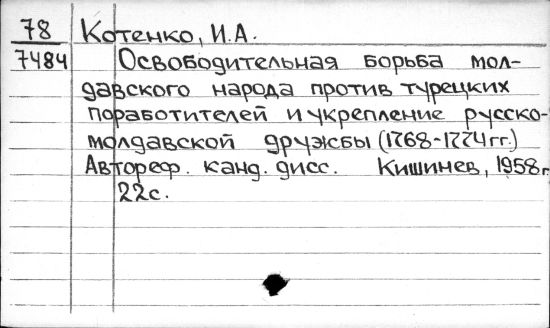 78 Котенко, И.А.
7484 Освободительная борьба мол-
давского народа против турецких
поработителей и укрепление русско-
молдавской дружбы (1768-1774гг.)
Автореф. канд. дисс. Кишинев, 1958г
22с.